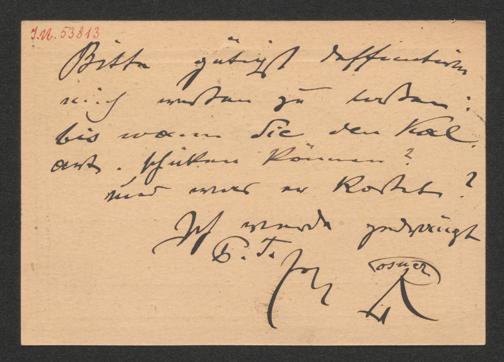 J.N. 53813
Bitte gütigst
mich wissen zu lassen:
bis wann Sie den Kal.
art. schicken können?
und was er kostet?
Ich werde gedrängt
E. T.
Rosner